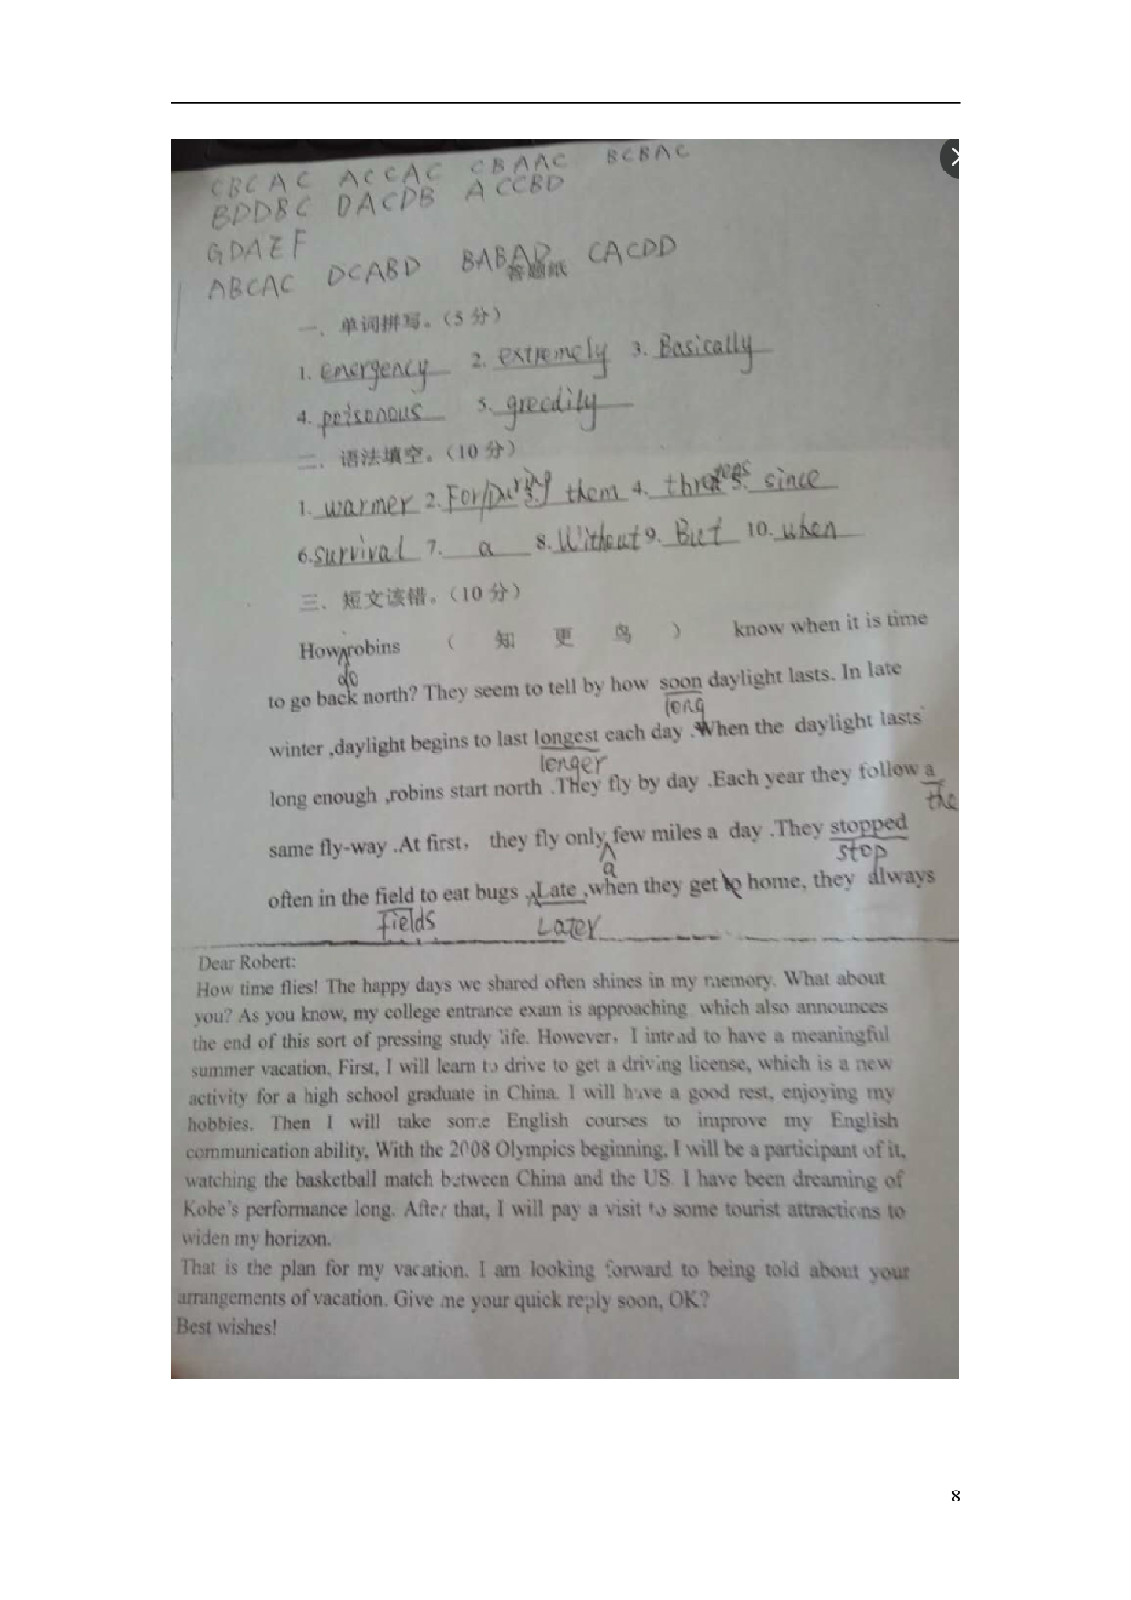 CBCAC ACCAC CBAAC BCBAC
BDDBC DACDB ACCBD
GDAEF
ABCAC DCABD BABAD CACDD
答题纸
一、单词拼写。(5 分)
1. emergency 2. extremely 3. Basically
4. poisonous 5. greedily
二、语法填空。(10 分)
1. warmer 2. For/During 3. them 4. threatens 5. since
6. survival 7. a 8. Without 9. But 10. when
三、短文该错。(10 分)
How robins ( 知 更 鸟 ) know when it is time
do
to go back north? They seem to tell by how soon daylight lasts. In late
long
winter ,daylight begins to last longest each day .When the daylight lasts
longer
long enough ,robins start north .They fly by day .Each year they follow a
the
same fly-way .At first, they fly only few miles a day .They stopped
a stop
often in the field to eat bugs .Late ,when they get to home, they always
fields Later
Dear Robert:
How time flies! The happy days we shared often shines in my memory. What about
you? As you know, my college entrance exam is approaching which also announces
the end of this sort of pressing study life. However, I intend to have a meaningful
summer vacation. First, I will learn to drive to get a driving license, which is a new
activity for a high school graduate in China. I will have a good rest, enjoying my
hobbies. Then I will take some English courses to improve my English
communication ability. With the 2008 Olympics beginning, I will be a participant of it,
watching the basketball match between China and the US. I have been dreaming of
Kobe's performance long. After that, I will pay a visit to some tourist attractions to
widen my horizon.
That is the plan for my vacation. I am looking forward to being told about your
arrangements of vacation. Give me your quick reply soon, OK?
Best wishes!
8